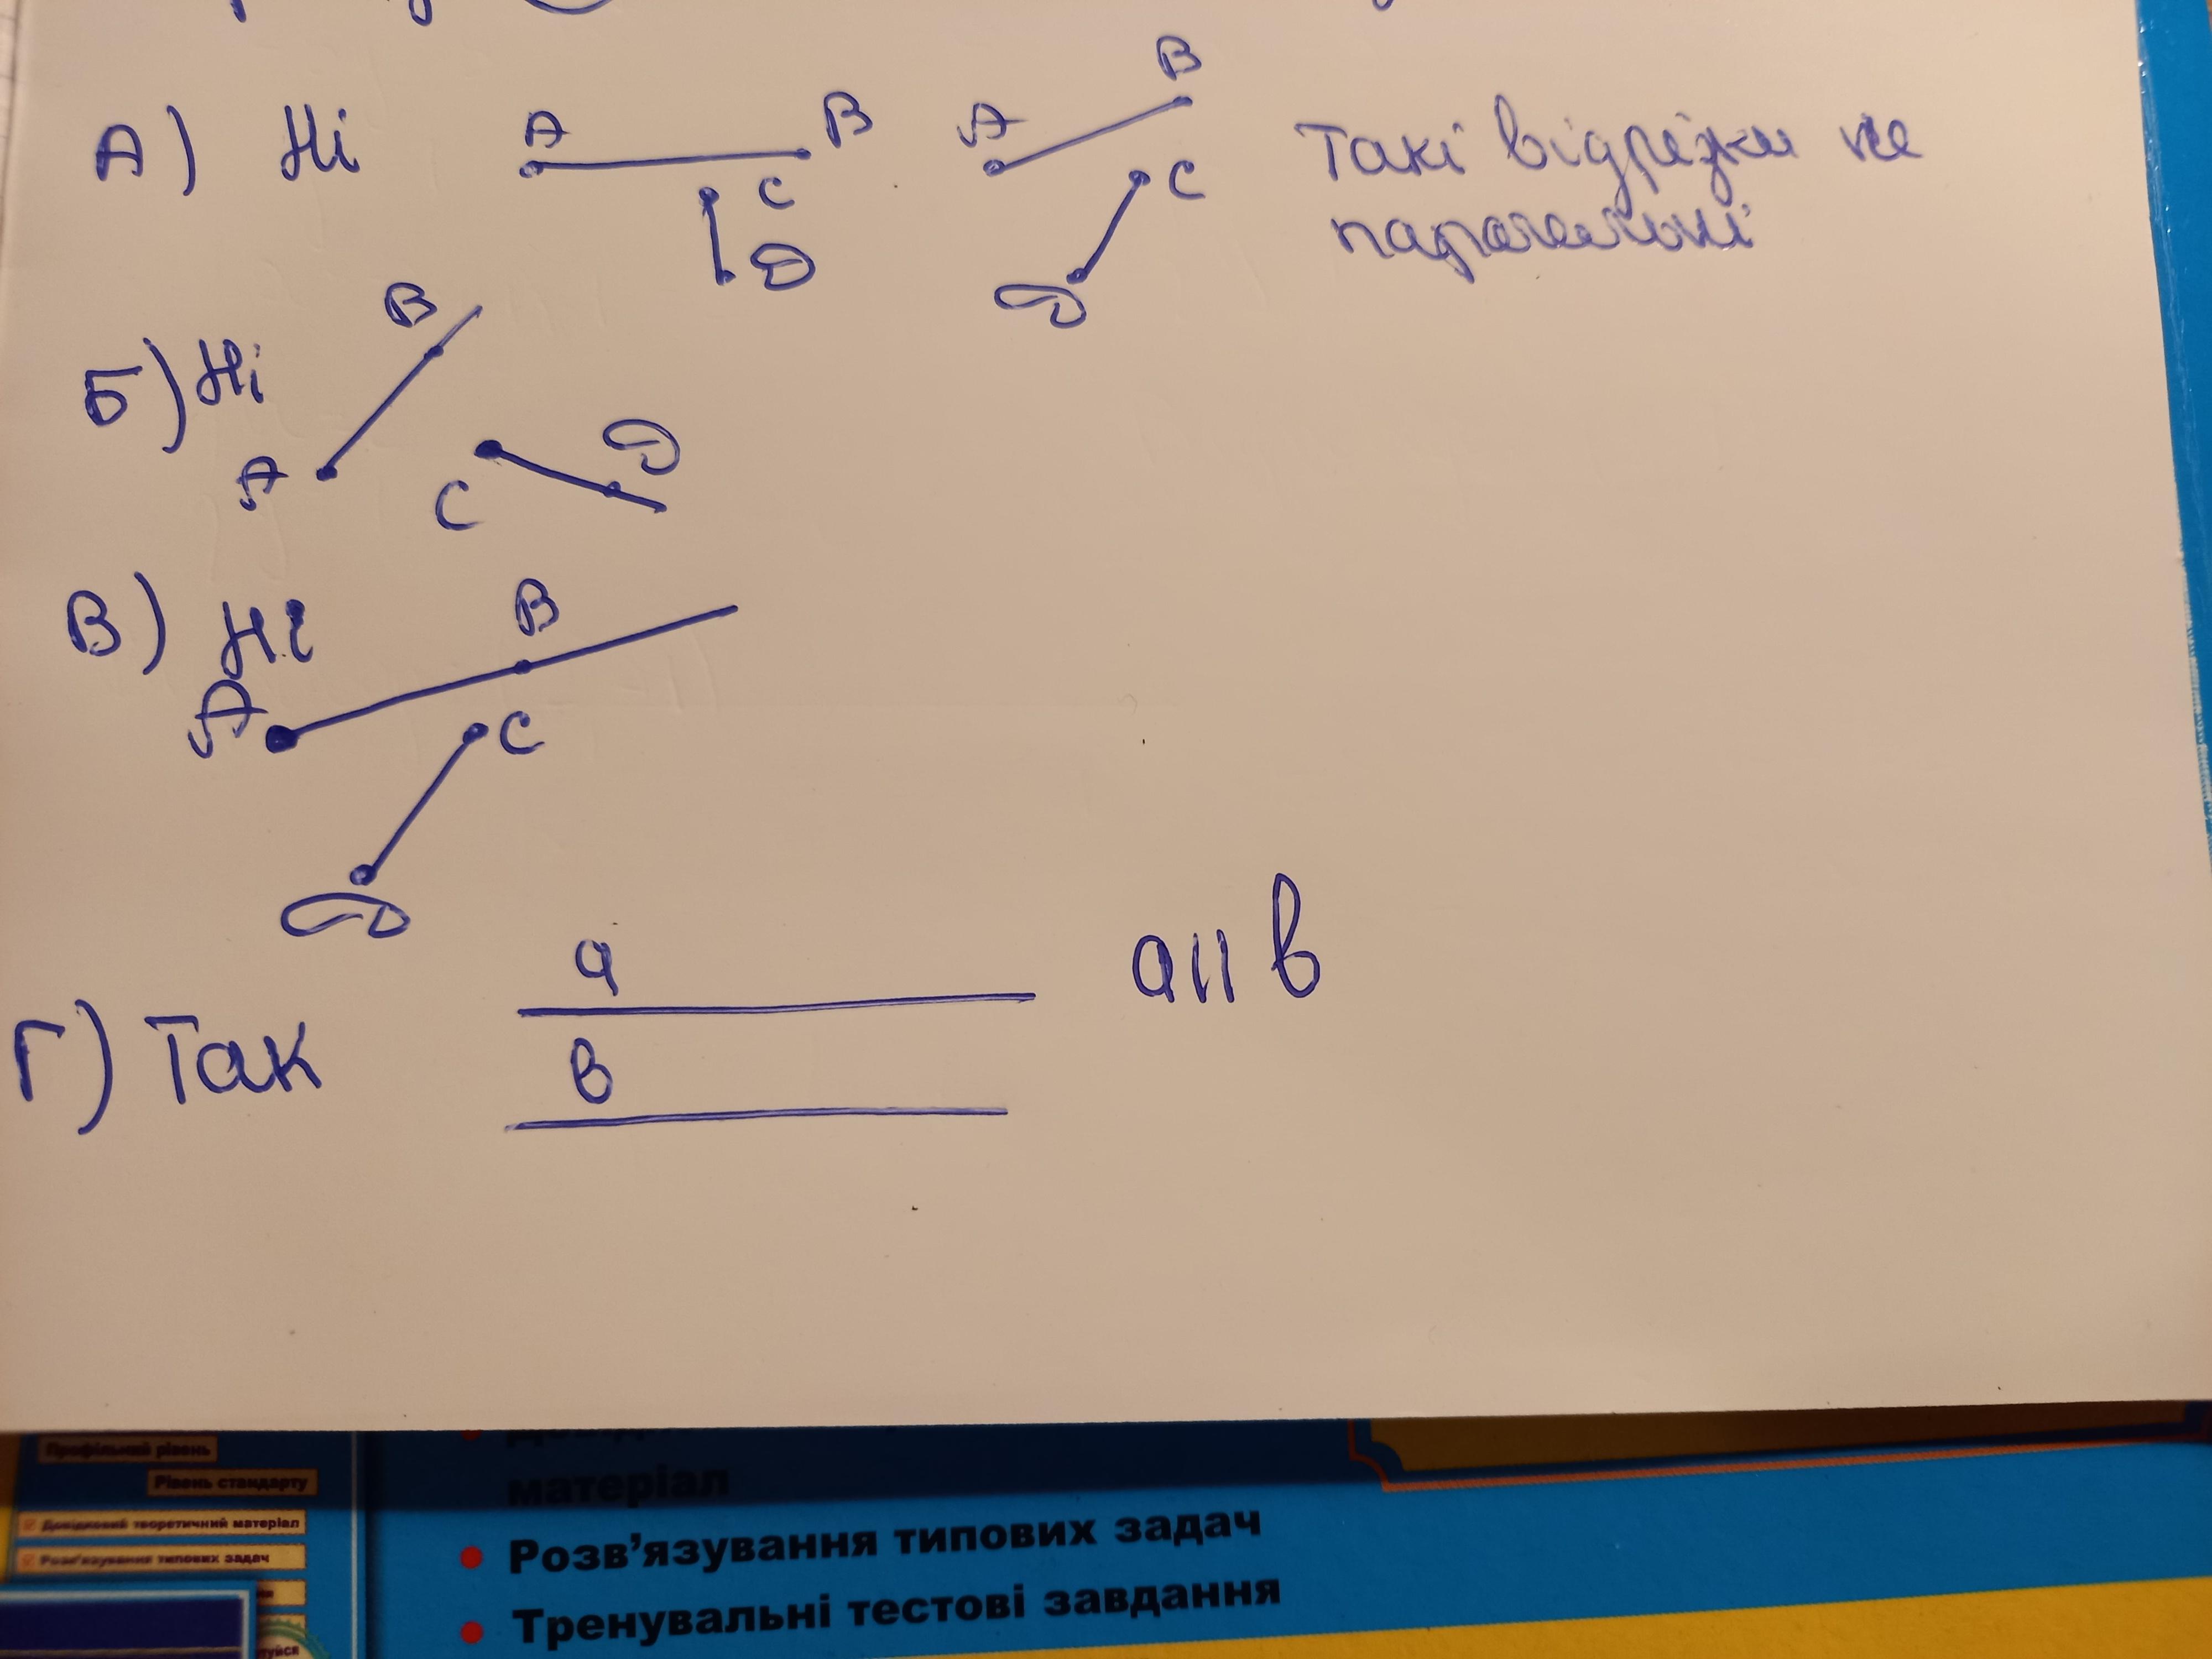 А) Ні A B C D A B C D Такі відрізки не
паралельні
Б) Ні A B C D
В) Ні A B C D
Г) Так a в a || в
Профільний рівень
Рівень стандарту
Довідковий теоретичний матеріал
Розв'язування типових задач
матеріал
• Розв'язування типових задач
• Тренувальні тестові завдання